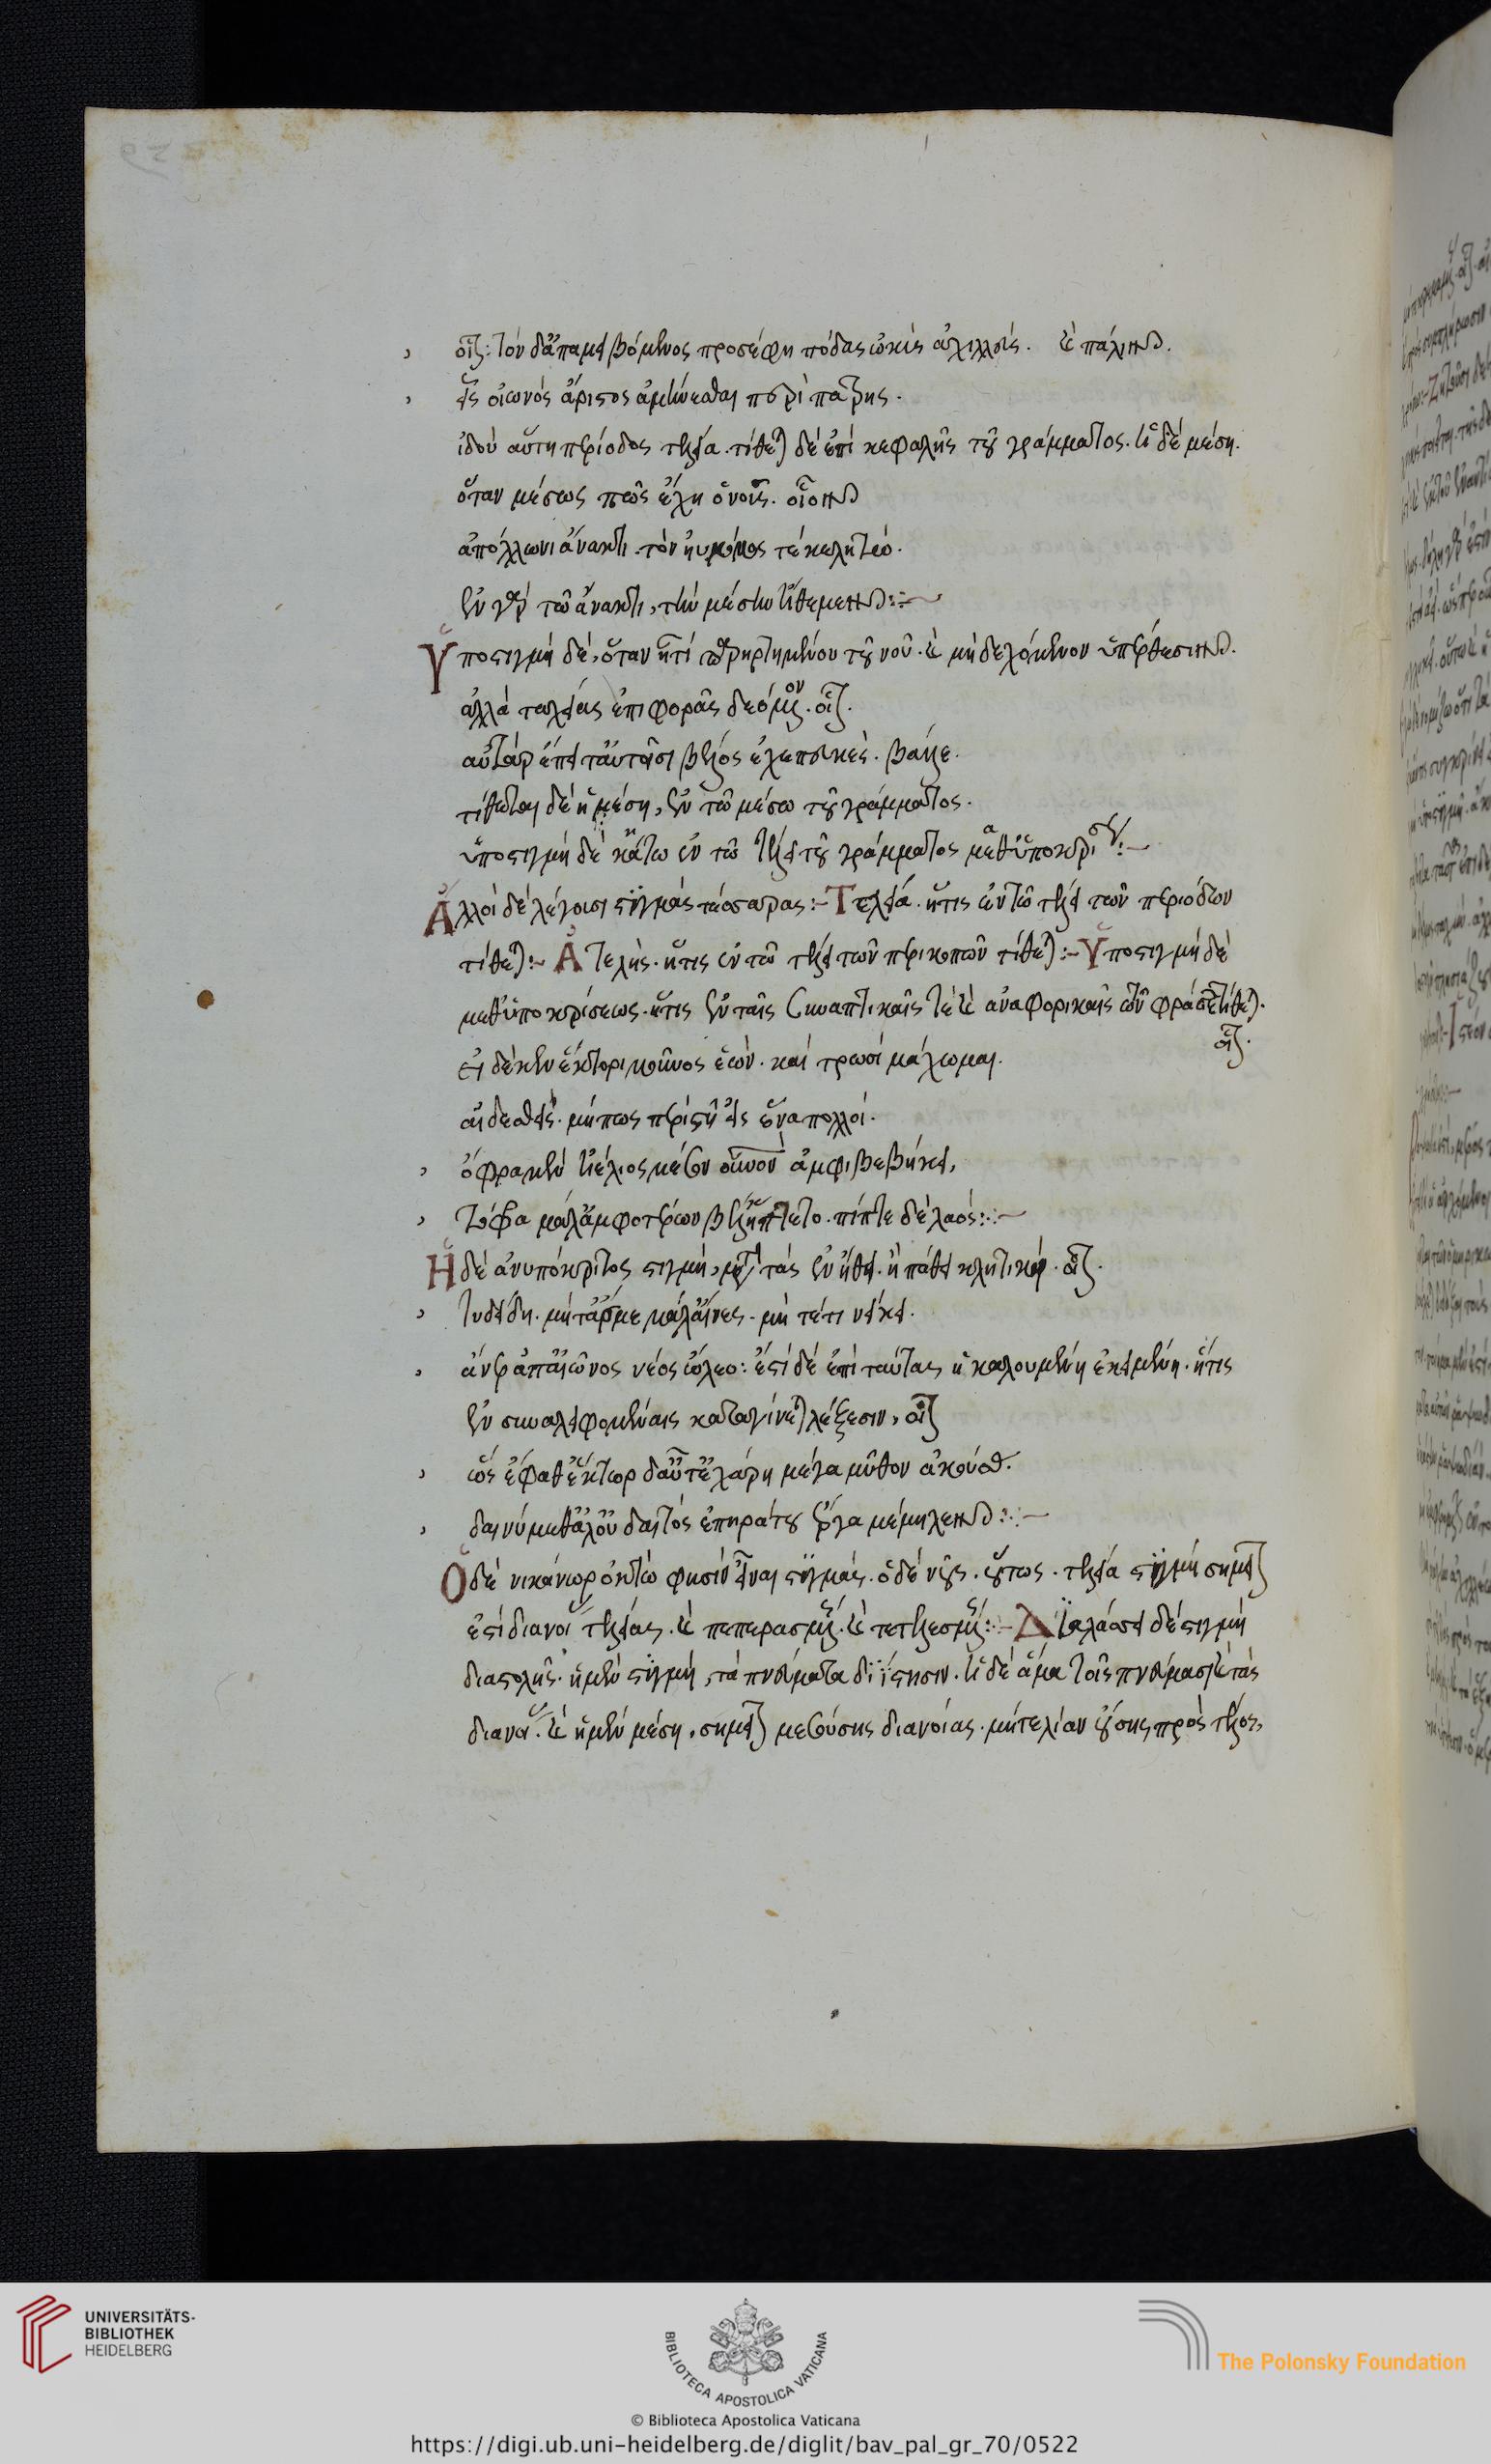 οἷον· τὸν δ' ἀπαμειβόμενος προσέφη πόδας ὠκὺς ἀχιλλεύς. καὶ πάλιν.
εἷς οἰωνὸς ἄριστος ἀμύνεσθαι περὶ πάτρης.
ἰδοὺ αὕτη περίοδος τελεία. τίθεται δὲ ἐπὶ κεφαλῆς τοῦ γράμματος. ἡ δὲ μέση.
ὅταν μέσως πως ἔχη ὁ νοῦς. οἷον
ἀπόλλωνι ἄνακτι. τὸν ἠύκομος τέκε λητώ.
ἐν γὰρ τῶ ἄνακτι, τὴν μέσην τίθεμεν :~
Ὑποστιγμὴ δὲ, ὅταν ἔτι παρηρτημένου τοῦ νοῦ. καὶ μὴ δεχόμενον ὑπέρθεσιν.
ἀλλὰ ταχείας ἐπιφορᾶς δεόμενον. οἷον.
αὐτὰρ ἔπειτ' αὐτοῖσι βέλος ἐχεπευκὲς. βάλλε.
τίθεται δὲ ἡ μέση, ἐν τῶ μέσω τοῦ γράμματος.
ὑποστιγμὴ δὲ κάτω ἐν τῶ τέλει τοῦ γράμματος μεθ' ὑποκρίσεως :~
Ἄλλοι δὲ λέγουσι στιγμὰς τέσσαρας :~ Τελεία. ἥτις ἐν τῶ τέλει τῶν περιόδων
τίθεται :~ Ἀτελὴς. ἥτις ἐν τῶ τέλει τῶν περικοπῶν τίθεται :~ Ὑποστιγμὴ δὲ
μεθ' ὑποκρίσεως. ἥτις ἐν ταῖς συναπτικαῖς τε καὶ ἀναφορικαῖς τῶν φράσεων τίθεται.
οἷον.
εἰ δέ κεν ἕκτορι μοῦνος ἐὼν. καὶ τρωσὶ μάχωμαι.
αἰδεσθεὶς. μήπως περιστήωσ' ἕνα πολλοί.
ὄφρα μὲν ἠέλιος μέσον οὐρανὸν ἀμφιβεβήκει,
τόφρα μάλ' ἀμφοτέρων βέλε' ἥπτετο. πίπτε δὲ λαός :~
Ἡ δὲ ἀνυπόκριτος στιγμὴ, μετὰ τὰς ἐν ἤθει. ἢ πάθει κλητικάς. οἷον.
τυδείδη. μήτ' ἄρ με μάλ' αἴνεε. μή τέ τι νείκει.
ἄνερ ἀπ' αἰῶνος νέος ὤλεο : ἔστι δὲ ἐπὶ ταύταις ἡ καλουμένη ἐκειμένη. ἥτις
ἐν συναλειφομέναις καταγίνεται λέξεσιν, οἷον
ὣς ἔφαθ' ἕκτωρ δ' αὖτ' ἐχάρη μέγα μῦθον ἀκούσας.
δαινύμεθ' ἀλλ' οὐ δαιτὸς ἐπηράτου ἔργα μέμηλεν :~
Ὁ δὲ νικάνωρ ὀκτώ φησιν εἶναι στιγμάς. ὁ δὲ νοῦς. οὕτως. τελεία στιγμὴ σημεῖον
ἐστὶ διανοίας τελείας. καὶ πεπερασμένης. καὶ τετελεσμένης :~ Διαλλάσσει δὲ στιγμὴ
διαστολῆς. ἡ μὲν στιγμὴ, τὰ πνεύματα διίστησιν. ἡ δὲ ἅμα τοῖς πνεύμασι καὶ τὰς
διανοίας. καὶ ἡ μὲν μέση, σημεῖον μεσούσης διανοίας. μὴ τελείαν οὔσης πρὸς τέλος,
UNIVERSITÄTS-
BIBLIOTHEK
HEIDELBERG
BIBLIOTECA APOSTOLICA VATICANA
The Polonsky Foundation
© Biblioteca Apostolica Vaticana
https://digi.ub.uni-heidelberg.de/diglit/bav_pal_gr_70/0522